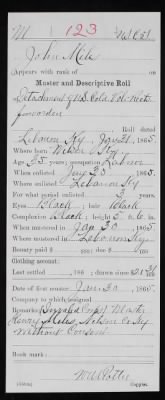 M 123 U.S.C.T.
John Mils
Appears with rank of
Muster and Descriptive Roll
Detachment of U.S. Cold. Vols. not
forwarded
Roll dated
Lebanon Ky Jan 31, 1865.
Where born Ky.
Age 35 years; occupation Laborer
When enlisted Jany 23, 1865.
Where enlisted Lebanon Ky
For what period enlisted years.
Eyes Black; hair Black
Complexion Black; height 5 ft. 6 in.
When mustered in Jan 30, 1865.
Where mustered in Lebanon Ky.
Bounty paid $ ; due $
Clothing account:
Last settled , 186 ; drawn since $
Date of first muster Jan 30, 1865.
Company to which assigned
Remarks:
Henry Miles, Nelson Co Ky
Without Consent
Book mark:
Copyist.